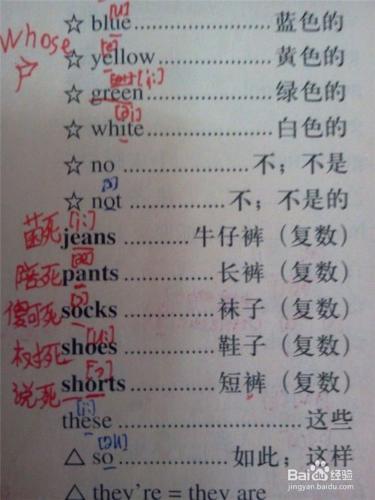 [u:]
☆ blue..................蓝色的
whose
[e]
☆ yellow..................黄色的
户
ee→[i:]
☆ green..................绿色的
[ai]
☆ white..................白色的
☆ no ..................不；不是
[ɔ]
☆ not ..................不；不是的
[i:]
jeans ............牛仔裤（复数）
[æ]
pants ............长裤（复数）
[ɔ]
socks ............袜子（复数）
[u:]
shoes ............鞋子（复数）
[ɔ:]
说死 shorts ............短裤（复数）
[i:]
these ..................这些
[əu]
△ so..................如此；这样
△ they're = they are
Baidu经验
jingyan.baidu.com